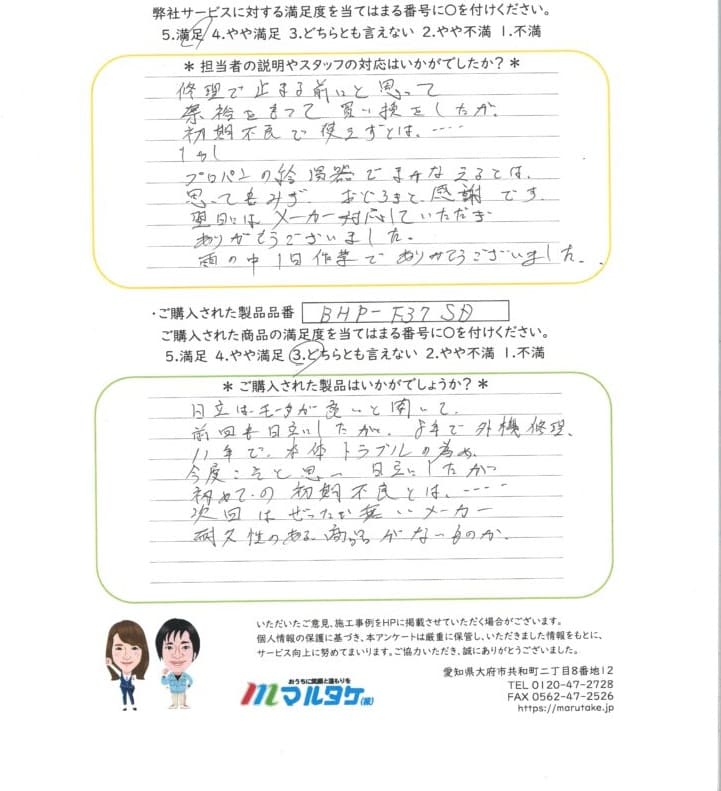 弊社サービスに対する満足度を当てはまる番号に〇を付けください。
5.満足 4.やや満足 3.どちらとも言えない 2.やや不満 1.不満
＊担当者の説明やスタッフの対応はいかがでしたか？＊
修理で止まる前にと思って
余裕をもって買い換をしたが、
初期不良で使えずとは、‥‥
プロパンの給湯器でまかなえるとは、
思ってもみず、おどろきと感謝です。
翌日にはメーカー対応していただき
ありがとうございました。
雨の中1日作業でありがとうございました。
・ご購入された製品品番 BHP-F37SD
ご購入された商品の満足度を当てはまる番号に〇を付けください。
5.満足 4.やや満足 3.どちらとも言えない 2.やや不満 1.不満
＊ご購入された製品はいかがでしょうか？＊
日立はモータが良いと聞いて、
前回も日立にしたが、 年で外機修理、
11年で、本体トラブルの為め、
今度こそと思 日立にしたが
初めての初期不良とは、‥‥
次回はぜったい無いメーカー
耐久性のある商品がないものか、
いただいたご意見、施工事例をHPに掲載させていただく場合がございます。
個人情報の保護に基づき、本アンケートは厳重に保管し、いただきました情報をもとに、
サービス向上に努めてまいります。ご協力いただき、誠にありがとうございました。
おうちに笑顔と温もりを
マルタケ(株)
愛知県大府市共和町二丁目8番地12
TEL 0120-47-2728
FAX 0562-47-2526
https://marutake.jp